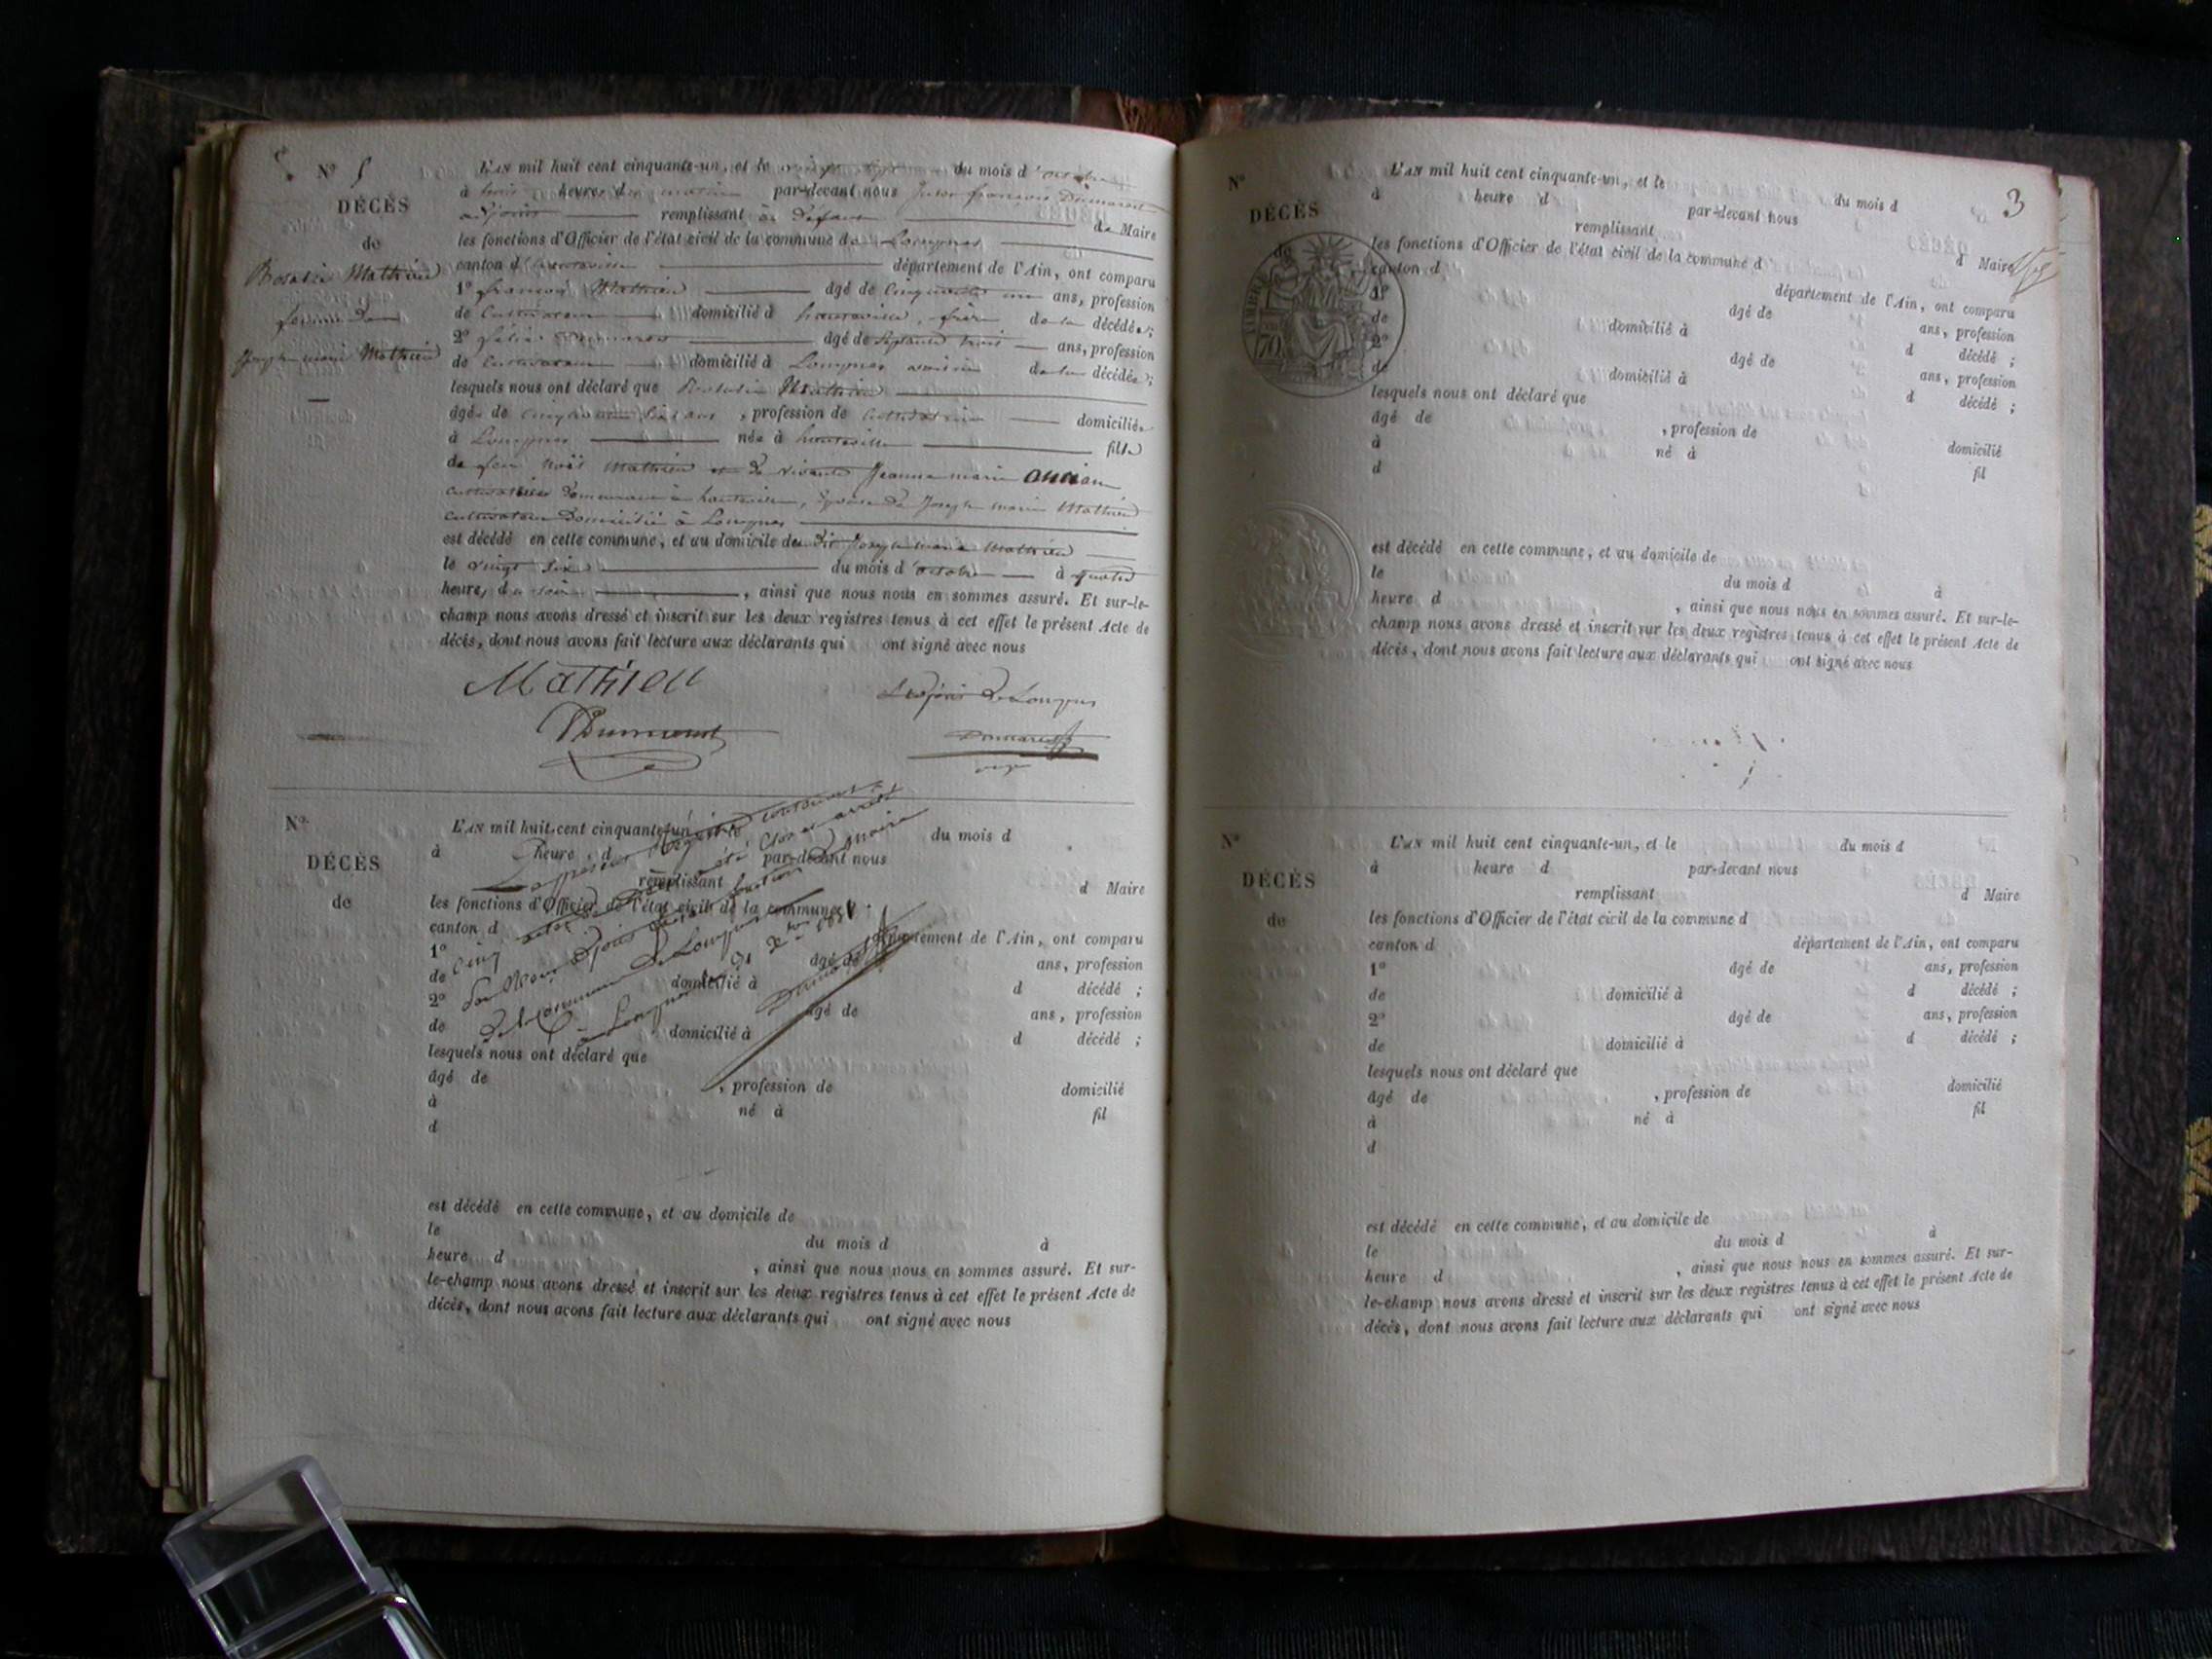 N.º 5
DÉCÈS
de
Rosalie Mathieu
femme de
Joseph marie Mathieu
L'AN mil huit cent cinquante-un, et le vingt sept du mois d'octobre
à trois heures du matin par-devant nous françois Dumarest
adjoint remplissant à défaut de Maire
les fonctions d'Officier de l'état civil de la commune de Longnes
canton d'hauteville département de l'Ain, ont comparu
1º françois Mathieu âgé de Cinquante un ans, profession
de Cultivateur domicilié à hauteville, frère de la décédée;
2º âgé de Septante trois ans, profession
de Cultivateur domicilié à Longnes voisin de la décédée;
lesquels nous ont déclaré que Rosalie Mathieu
âgée de ans, profession de Cultivatrice domiciliée
à Longnes née à hauteville fille
de feu Noël Mathieu et de vivante Jeanne marie
cultivatrice demeurant à hauteville, Epouse de Joseph marie Mathieu
cultivateur domicilié à Longnes
est décédé en cette commune, et au domicile du dit Joseph marie Mathieu
le vingt six du mois d'octobre à quatre
heures du soir, ainsi que nous nous en sommes assuré. Et sur-le-
champ nous avons dressé et inscrit sur les deux registres tenus à cet effet le présent Acte de
décès, dont nous avons fait lecture aux déclarants qui ont signé avec nous
Mathieu
L'adjoint de Longnes
Dumarest
N.º
DÉCÈS
de
L'AN mil huit cent cinquante-un, et le du mois d
à heure d par-devant nous
remplissant d Maire
les fonctions d'Officier de l'état civil de la commune d
canton d département de l'Ain, ont comparu
1º âgé de ans, profession
de domicilié à d décédé ;
2º âgé de ans, profession
de domicilié à d décédé ;
lesquels nous ont déclaré que
âgé de , profession de domicilié
à né à fil
d
est décédé en cette commune, et au domicile de
le du mois d à
heure d , ainsi que nous nous en sommes assuré. Et sur-
le-champ nous avons dressé et inscrit sur les deux registres tenus à cet effet le présent Acte de
décès, dont nous avons fait lecture aux déclarants qui ont signé avec nous
Le présent Registre contenant
cinq actes a été Clos et arrêté
par Nous adjoint fonctions de maire
de la Commune de Longnes
à Longnes 31 Xbre 1851
Dumarest
3
N.º
DÉCÈS
de
TIMBRE
70
L'AN mil huit cent cinquante-un, et le du mois d
à heure d par-devant nous
remplissant d Maire
les fonctions d'Officier de l'état civil de la commune d
canton d département de l'Ain, ont comparu
1º âgé de ans, profession
de domicilié à d décédé ;
2º âgé de ans, profession
de domicilié à d décédé ;
lesquels nous ont déclaré que
âgé de , profession de domicilié
à né à fil
d
est décédé en cette commune, et au domicile de
le du mois d à
heure d , ainsi que nous nous en sommes assuré. Et sur-le-
champ nous avons dressé et inscrit sur les deux registres tenus à cet effet le présent Acte de
décès, dont nous avons fait lecture aux déclarants qui ont signé avec nous
N.º
DÉCÈS
de
L'AN mil huit cent cinquante-un, et le du mois d
à heure d par-devant nous
remplissant d Maire
les fonctions d'Officier de l'état civil de la commune d
canton d département de l'Ain, ont comparu
1º âgé de ans, profession
de domicilié à d décédé ;
2º âgé de ans, profession
de domicilié à d décédé ;
lesquels nous ont déclaré que
âgé de , profession de domicilié
à né à fil
d
est décédé en cette commune, et au domicile de
le du mois d à
heure d , ainsi que nous nous en sommes assuré. Et sur-
le-champ nous avons dressé et inscrit sur les deux registres tenus à cet effet le présent Acte de
décès, dont nous avons fait lecture aux déclarants qui ont signé avec nous